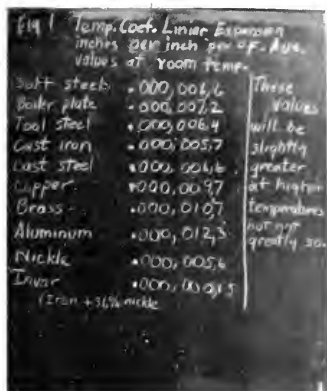 Fig 1 Temp. Coef. Linear Expansion
inches per inch per °F. Ave.
values at room temp.
Soft steel .000,006,6
Boiler plate .000,007,2
Tool steel .000,006,4
Cast iron .000,005,7
Cast steel .000,006,6
Copper .000,009,7
Brass .000,010,7
Aluminum .000,012,3
Nickle .000,005,6
Invar .000,000,5
(Iron + 36% nickle
These
values
will be
slightly
greater
at higher
temperatures
but not
greatly so.